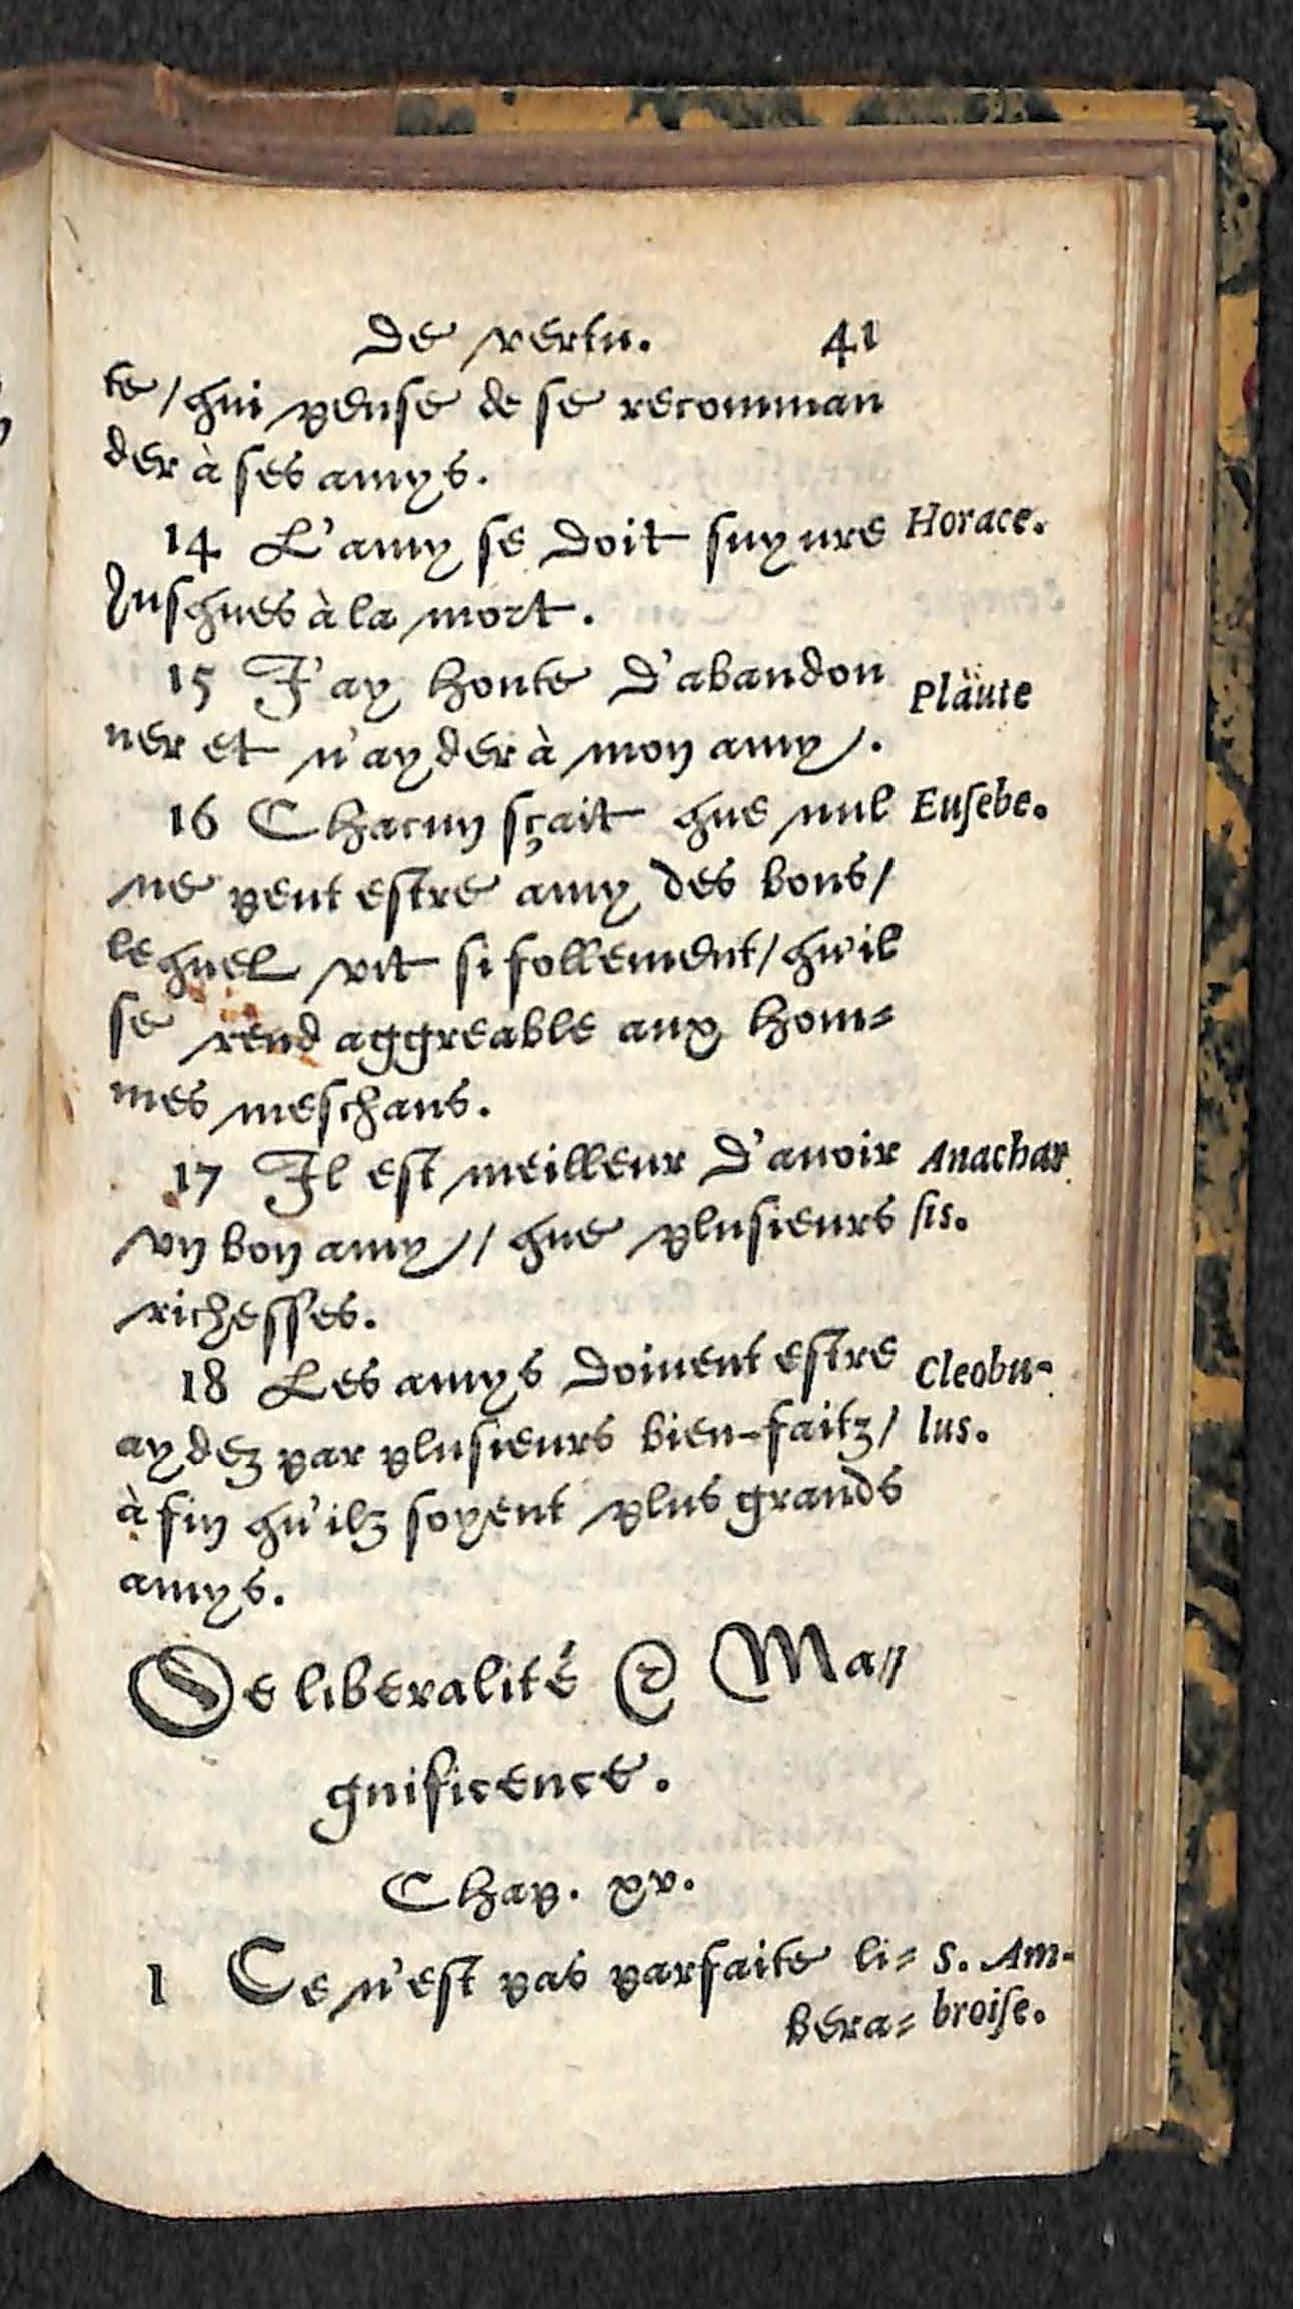 de vertu. 41
te/qui pense de se recomman
der à ses amys.
14 L'amy se doit suyure Horace.
Iusques à la mort.
15 I'ay honte d'abandon Plaute
ner et n'ayder à mon amy.
16 Chacun sçait que nul Eusebe.
ne peut estre amy des bons/
lequel vit si follement/qu'il
se rend aggreable aux hom=
mes meschans.
17 Il est meilleur d'auoir Anachar
vn bon amy// que plusieurs sis.
richesses.
18 Les amys doiuent estre Cleobu-
aydez par plusieurs bien-faitz/ lus.
à fin qu'ilz soyent plus grands
amys.
De liberalité & Ma//
gnificence.
Chap. xv.
1 Ce n'est pas parfaite li= S. Am-
bera= broise.